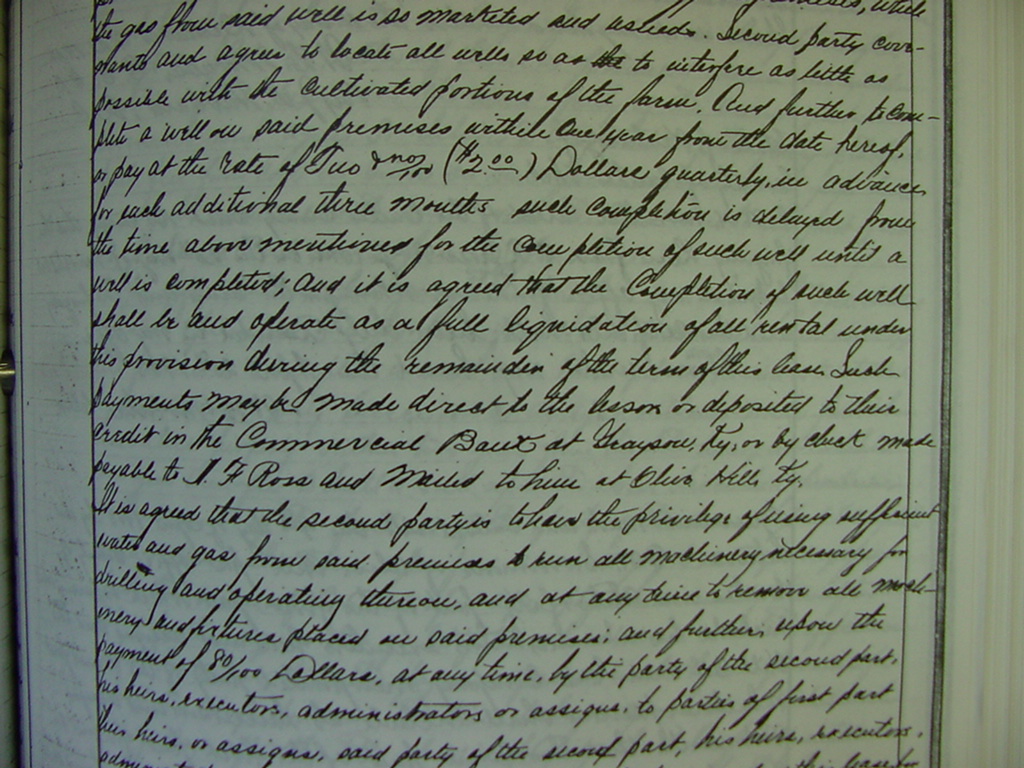 while
the gas from said well is so marketed and used. Second party cove-
nants and agrees to locate all wells so as to interfere as little as
possible with the cultivated portions of the farm. And further to com-
plete a well on said premises within one year from the date hereof,
or pay at the rate of Two & no/100 ($2.00) Dollars quarterly, in advance,
for each additional three months such completion is delayed from
the time above mentioned for the completion of such well until a
well is completed; and it is agreed that the Completion of such well
shall be and operate as a full liquidation of all rental under
this provision during the remainder of the term of this lease. Such
payments may be made direct to the lessor or deposited to their
credit in the Commercial Bank at Grayson, Ky, or by check made
payable to J. F. Ross and mailed to him at Olive Hill Ky.
It is agreed that the second party is to have the privilege of using sufficient
water and gas from said premises to run all machinery necessary for
drilling and operating thereon, and at any time to remove all mach-
inery and fixtures placed on said premises; and further, upon the
payment of 80/100 Dollars, at any time, by the party of the second part,
his heirs, executors, administrators or assigns, to parties of first part
their heirs, or assigns, said party of the second part, his heirs, executors,